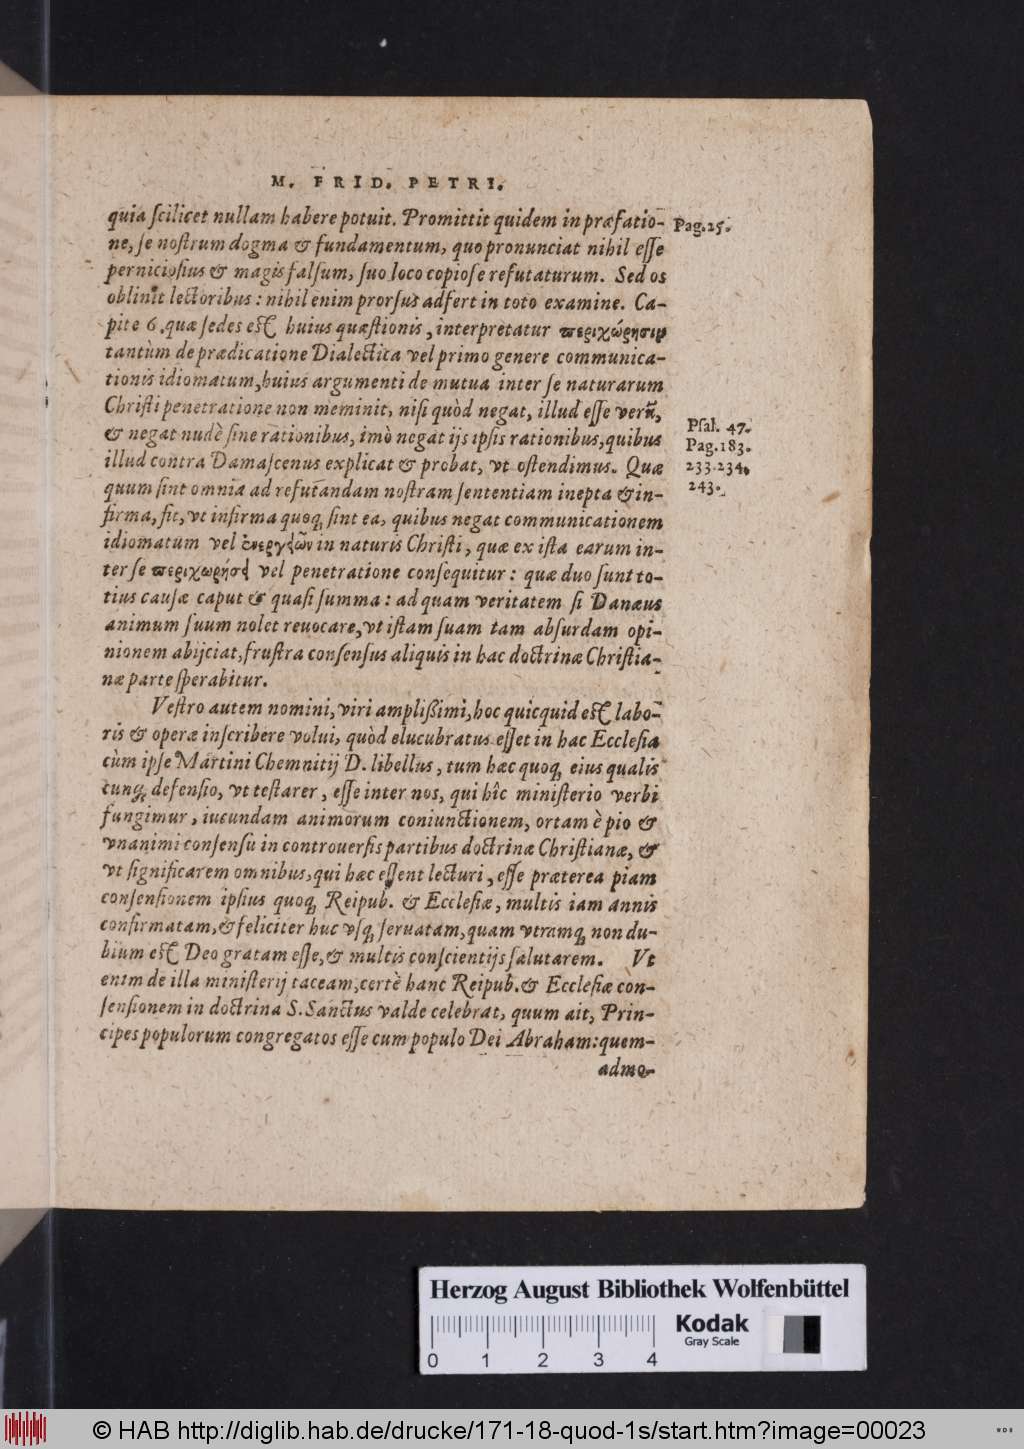 M. FRID. PETRI.
quia ſcilicet nullam habere potuit. Promittit quidem in præfatio-
Pag.25.
ne, ſe noſtrum dogma & fundamentum, quo pronunciat nihil eſſe
pernicioſius & magis falſum, ſuo loco copioſe refutaturum. Sed os
oblinit lectoribus: nihil enim prorſus adfert in toto examine. Ca-
pite 6. quæ ſedes est huius quæſtionis, interpretatur περιχώρησιν
tantùm de prædicatione Dialectica vel primo genere communica-
tionis idiomatum, huius argumenti de mutua inter ſe naturarum
Chriſti penetratione non meminit, niſi quòd negat, illud eſſe verũ,
Pſal. 47.
& negat nudè ſine rationibus, imò negat ijs ipſis rationibus, quibus
Pag.183.
illud contra Damaſcenus explicat & probat, vt oſtendimus. Quæ
233.234.
quum ſint omnia ad refutandam noſtram ſententiam inepta & in-
243.
firma, fit, vt infirma quoq; ſint ea, quibus negat communicationem
idiomatum vel ἐνεργειῶν in naturis Chriſti, quæ ex iſta earum in-
ter ſe περιχωρήσει vel penetratione conſequitur: quæ duo ſunt to-
tius cauſæ caput & quaſi ſumma: ad quam veritatem ſi Danæus
animum ſuum nolet reuocare, vt iſtam ſuam tam abſurdam opi-
nionem abijciat, fruſtra conſenſus aliquis in hac doctrinæ Chriſtia-
næ parte ſperabitur.
Veſtro autem nomini, viri ampliſſimi, hoc quicquid est labo-
ris & operæ inſcribere volui, quòd elucubratus eſſet in hac Eccleſia
cùm ipſe Martini Chemnitij D. libellus, tum hæc quoq; eius qualis
cunq; defenſio, vt teſtarer, eſſe inter nos, qui hîc miniſterio verbi
fungimur, iucundam animorum coniunctionem, ortam è pio &
vnanimi conſenſu in controuerſis partibus doctrinæ Chriſtianæ, &
vt ſignificarem omnibus, qui hæc eſſent lecturi, eſſe præterea piam
conſenſionem ipſius quoq; Reipub. & Eccleſiæ, multis iam annis
confirmatam, & feliciter huc vſq; ſeruatam, quam vtramq; non du-
bium est Deo gratam eſſe, & multis conſcientijs ſalutarem. Vt
enim de illa miniſterij taceam, certè hanc Reipub. & Eccleſiæ con-
ſenſionem in doctrina S. Sanctus valde celebrat, quum ait, Prin-
cipes populorum congregatos eſſe cum populo Dei Abraham: quem-
admo-
Herzog August Bibliothek Wolfenbüttel
Kodak
Gray Scale
0 1 2 3 4
© HAB http://diglib.hab.de/drucke/171-18-quod-1s/start.htm?image=00023